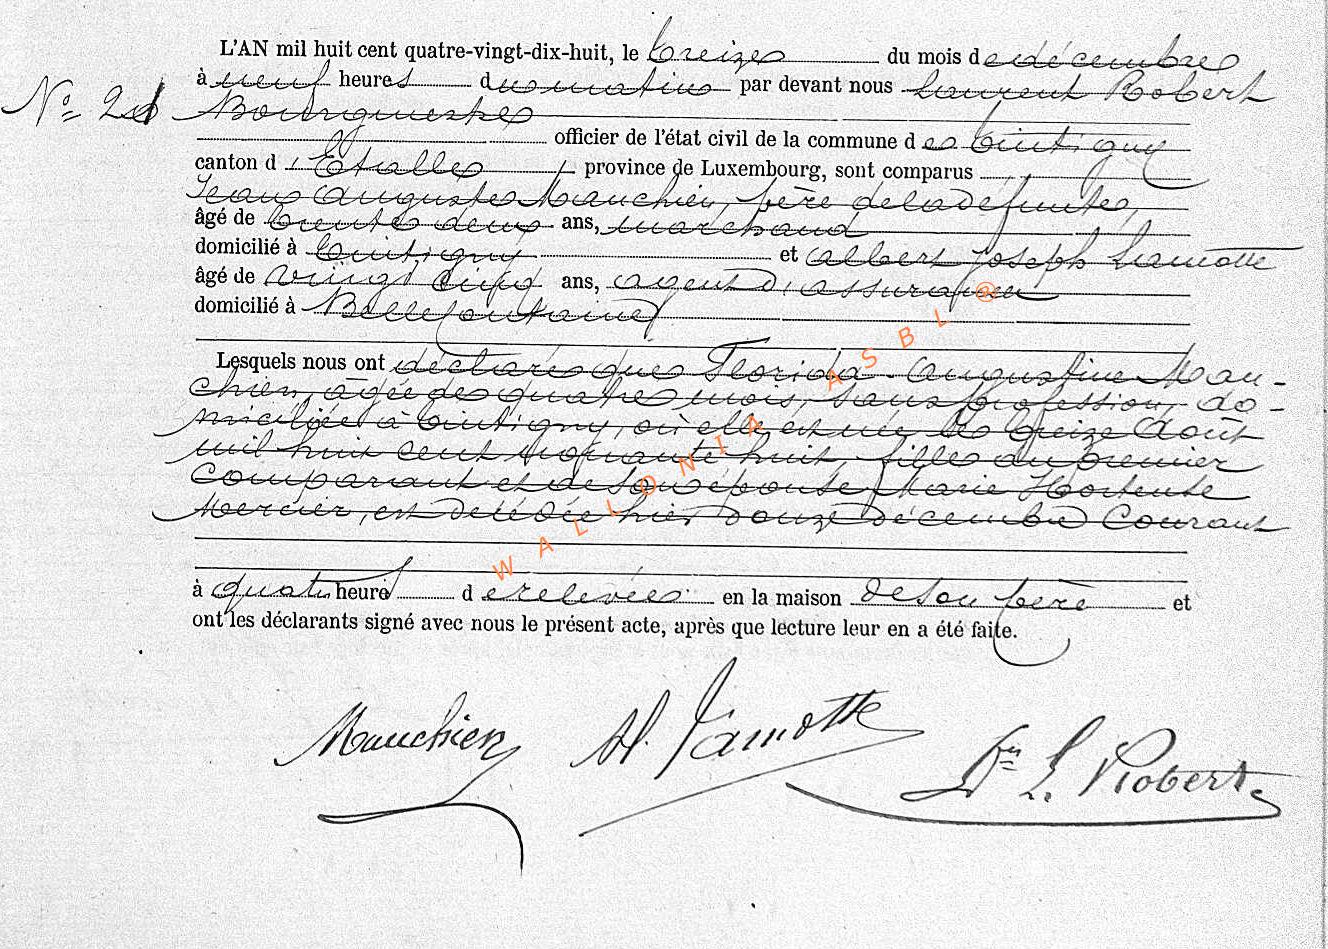 L'AN mil huit cent quatre-vingt-dix-huit, le treize du mois de décembre
à neuf heures du matin par devant nous Laurent Robert
N° 21 Bourgmestre
officier de l'état civil de la commune de Tintigny
canton d'Etalle, province de Luxembourg, sont comparus
Jean Auguste Mauchien, père de la défunte,
âgé de trente deux ans, marchand
domicilié à Tintigny et Albert Joseph Lamotte
âgé de vingt cinq ans, agent d'assurance
domicilié à Bellefontaine
Lesquels nous ont déclaré que Florida Augustine Mau-
chien, âgée de quatre mois, sans profession, do-
miciliée à Tintigny, où elle est née le treize Août
mil huit cent huit, fille du premier
Comparant et de son épouse Marie Hortense
Mercier, est décédée hier douze décembre Courant
à quatre heures de relevée en la maison de son père et
ont les déclarants signé avec nous le présent acte, après que lecture leur en a été faite.
Mauchien A. Lamotte L. Robert
WALLONIA ASBL ®